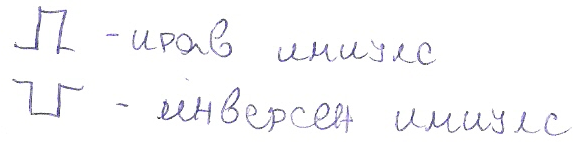 - прав импулс
- инверсен импулс